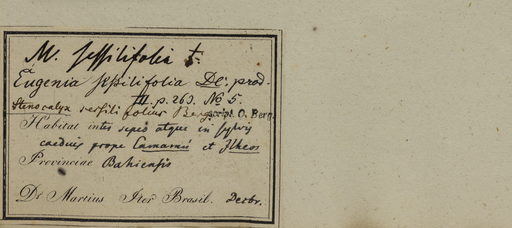 M. sessilifolia
Eugenia sessilifolia DC. prod.
III. p. 263. No 5.
Stenocalyx sessilifolius Berg. script. O. Berg.
Habitat inter sepes atque in sylvis
caeduis prope Camamú et Ilheos
Provinciae Bahiensis
Dr Martius Iter Brasil. Decbr.